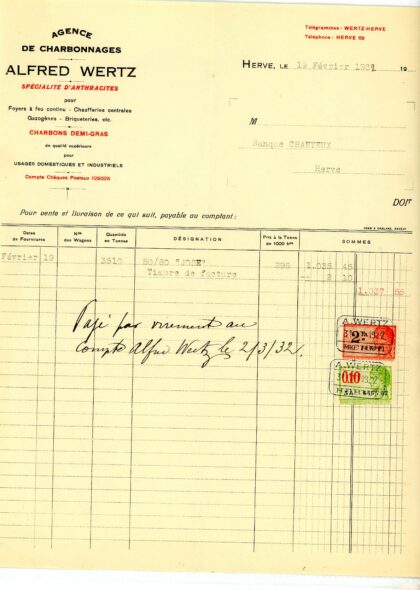 AGENCE
DE CHARBONNAGES
ALFRED WERTZ
SPÉCIALITÉ D'ANTHRACITES
pour
Foyers à feu continu - Chaufferies centrales
Gazogènes - Briqueteries, etc.
CHARBONS DEMI-GRAS
de qualité supérieure
pour
USAGES DOMESTIQUES ET INDUSTRIELS
Compte Chèques Postaux 129026
Télégrammes : WERTZ-HERVE
Téléphone : HERVE 69
HERVE, LE 19 Février 1932 19
M
Banque CHANTEUX
Herve
DOIT
Pour vente et livraison de ce qui suit, payable au comptant :
Dates de Fournitures
Nos des Wagons
Quantités en Tonnes
DÉSIGNATION
Prix à la Tonne de 1000 Kos
SOMMES
Février 19 3510 50/80 "JODE" 295 1.035 45
Timbre de facture 2 10
1.037 55
Payé par virement au
Compte Alfred Wertz le 2/3/32.
A. WERTZ
2
A. WERTZ
0.10